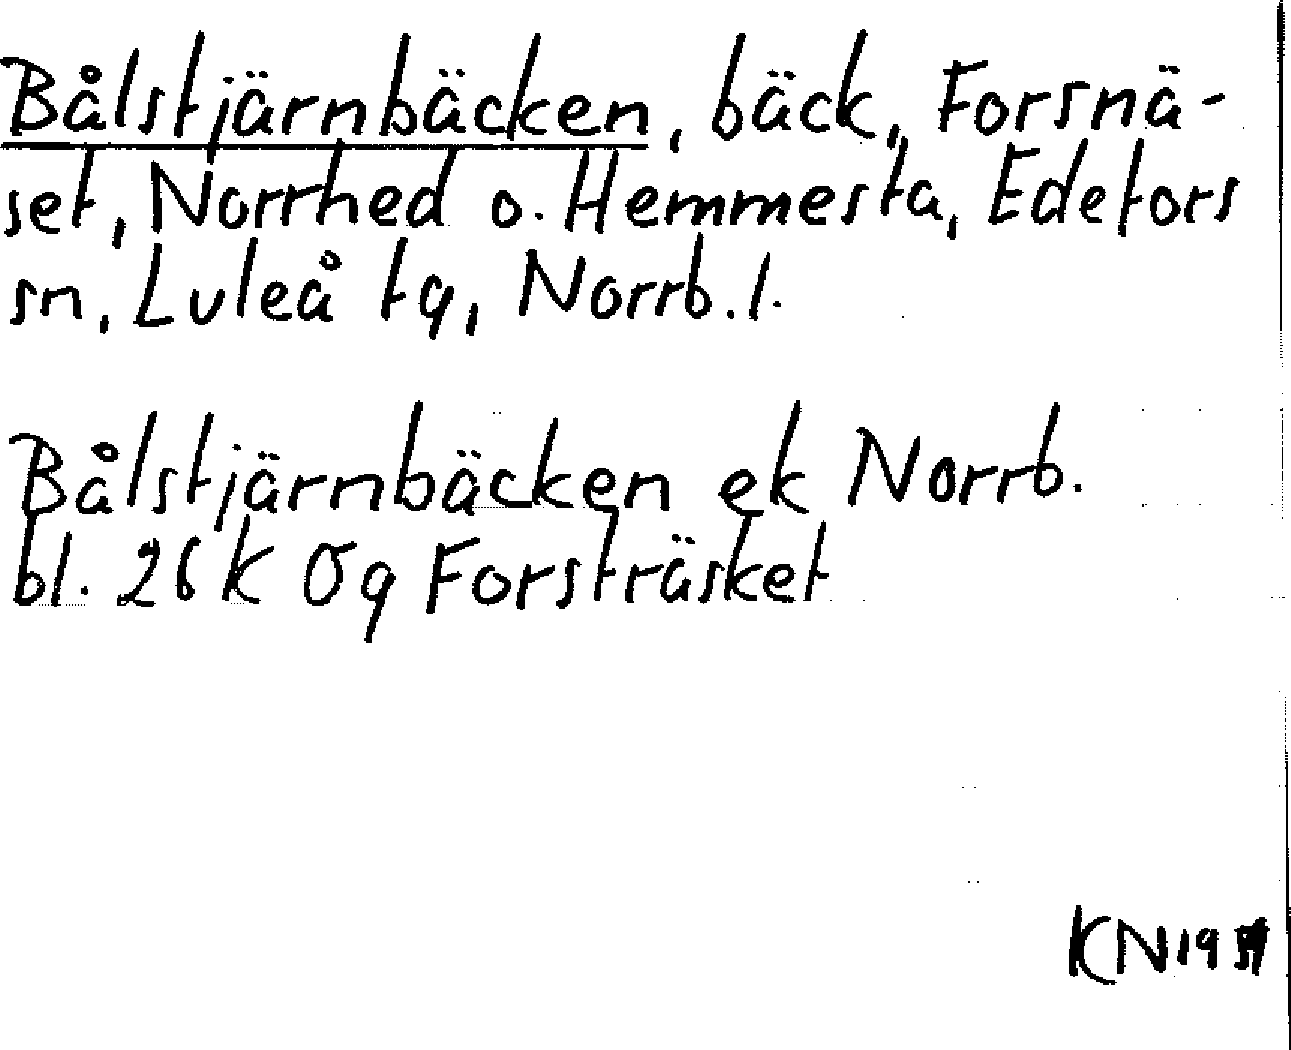 Bålstjärnbäcken, bäck, Forsnä-
set, Norrhed o. Hemmesta, Edefors
sn, Luleå tg, Norrb. l.
Bålstjärnbäcken ek Norrb.
bl. 26 K 0g Forsträsket
KN